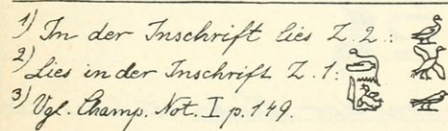 1) In der Inschrift lies Z. 2.:
2) Lies in der Inschrift Z. 1:
3) Vgl. Champ. Not. I p. 149.